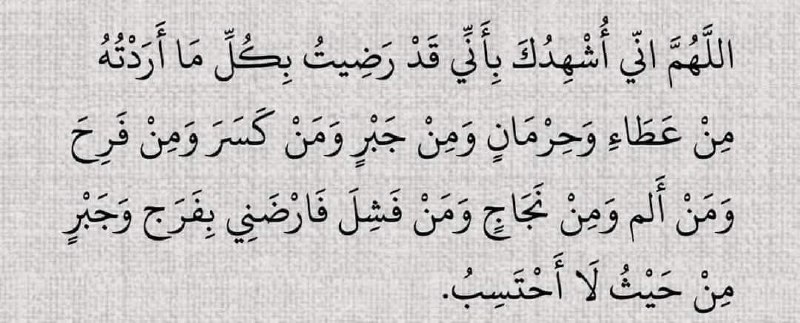 اللَّهُمَّ انّي أُشْهِدُكَ بِأَنِّي قَدْ رَضِيتُ بِكُلِّ مَا أَرَدْتُهُ
مِنْ عَطَاءِ وَحِرْمَانٍ وَمِنْ جَبْرٍ وَمَنْ كَسَرَ وَمِنْ فَرِحَ
وَمَنْ أَلم وَمِنْ نَجَاجٍ وَمَنْ فَشِلَ فَارْضَنِي بِفَرَج وَجَبْرٍ
مِنْ حَيْثُ لَا أَحْتَسِبُ.